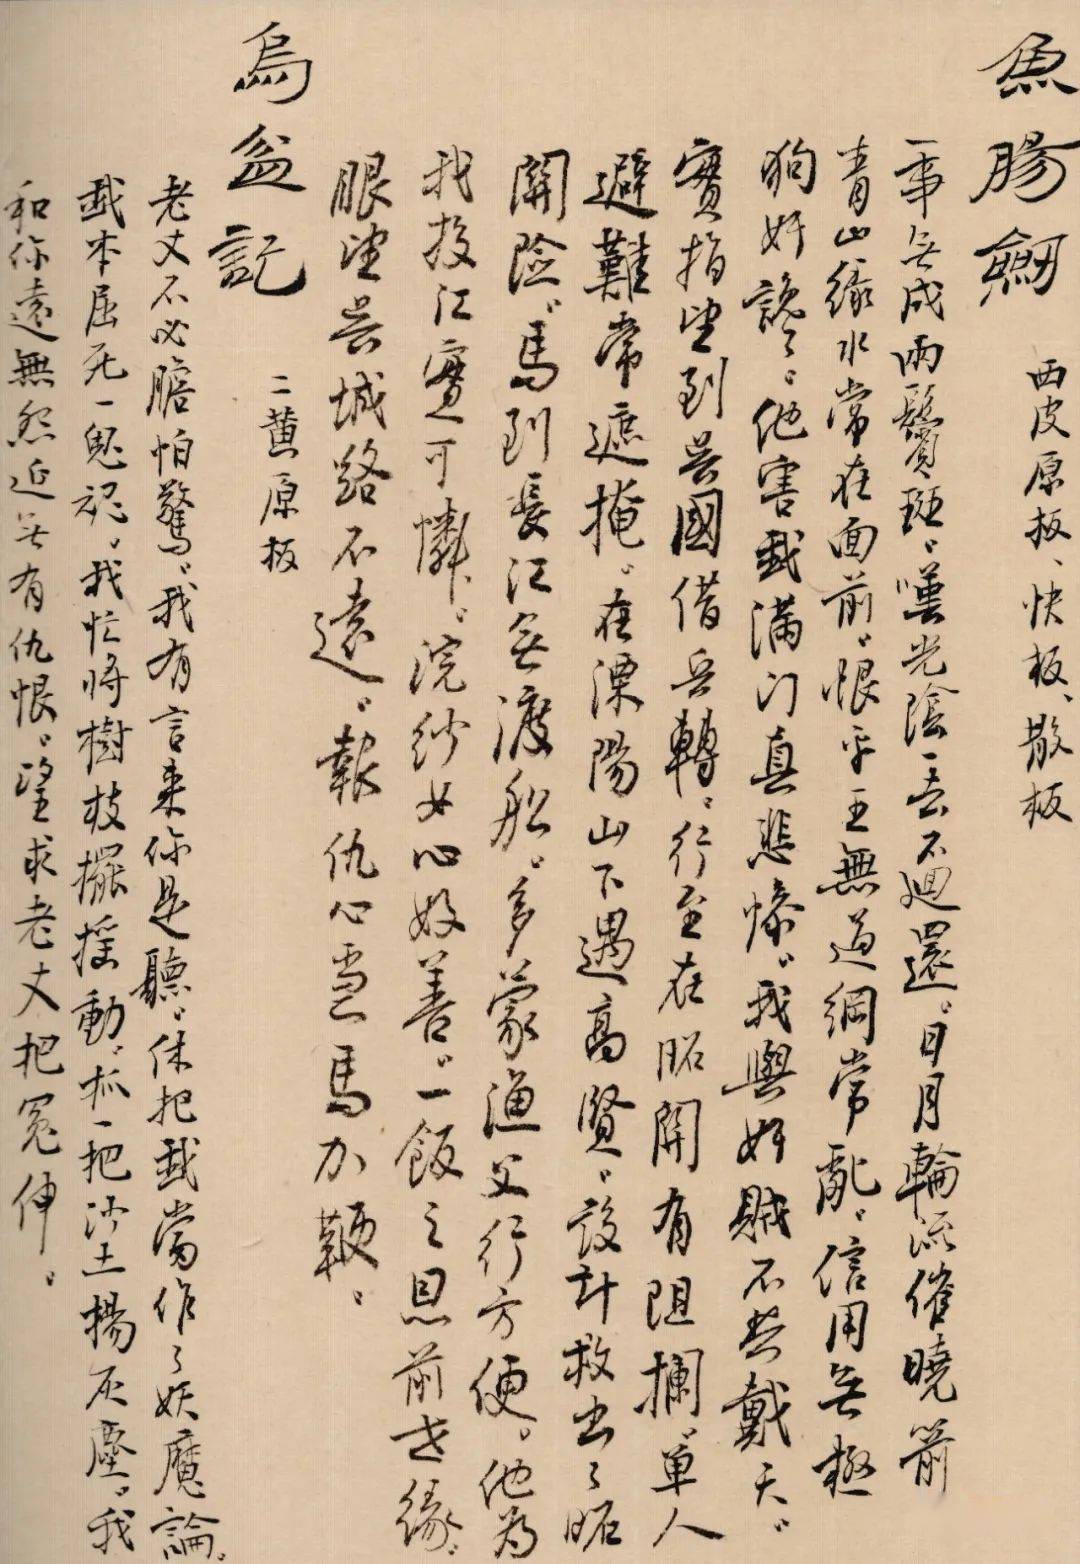 魚腸劍
西皮原板、快板、散板
一事無成兩鬢斑。嘆光陰一去不迴還。日月輪流催曉箭
青山綠水常在面前。恨平王無道綱常亂。信用無極
狗奸讒。他害我滿門真悲慘。我與奸賊不共戴天。
實指望到吳國借兵轉。行至在昭關有阻攔。單人
避難常遮掩。在溧陽山下遇高賢。設計救出了昭
關險。馬到長江無渡船。多蒙漁父行方便。他為
我投江實可憐。浣紗女心好善。一飯之恩前世緣。
眼望吳城路不遠。報仇心急馬加鞭。
烏盆記
二黃原板
老丈不必膽怕驚。我有言來你是聽。休把我當作了妖魔論。
我本屈死一鬼魂。我忙將樹枝擺搖動。抓一把沙土揚灰塵。我
和你遠無怨近無有仇恨。望求老丈把冤伸。